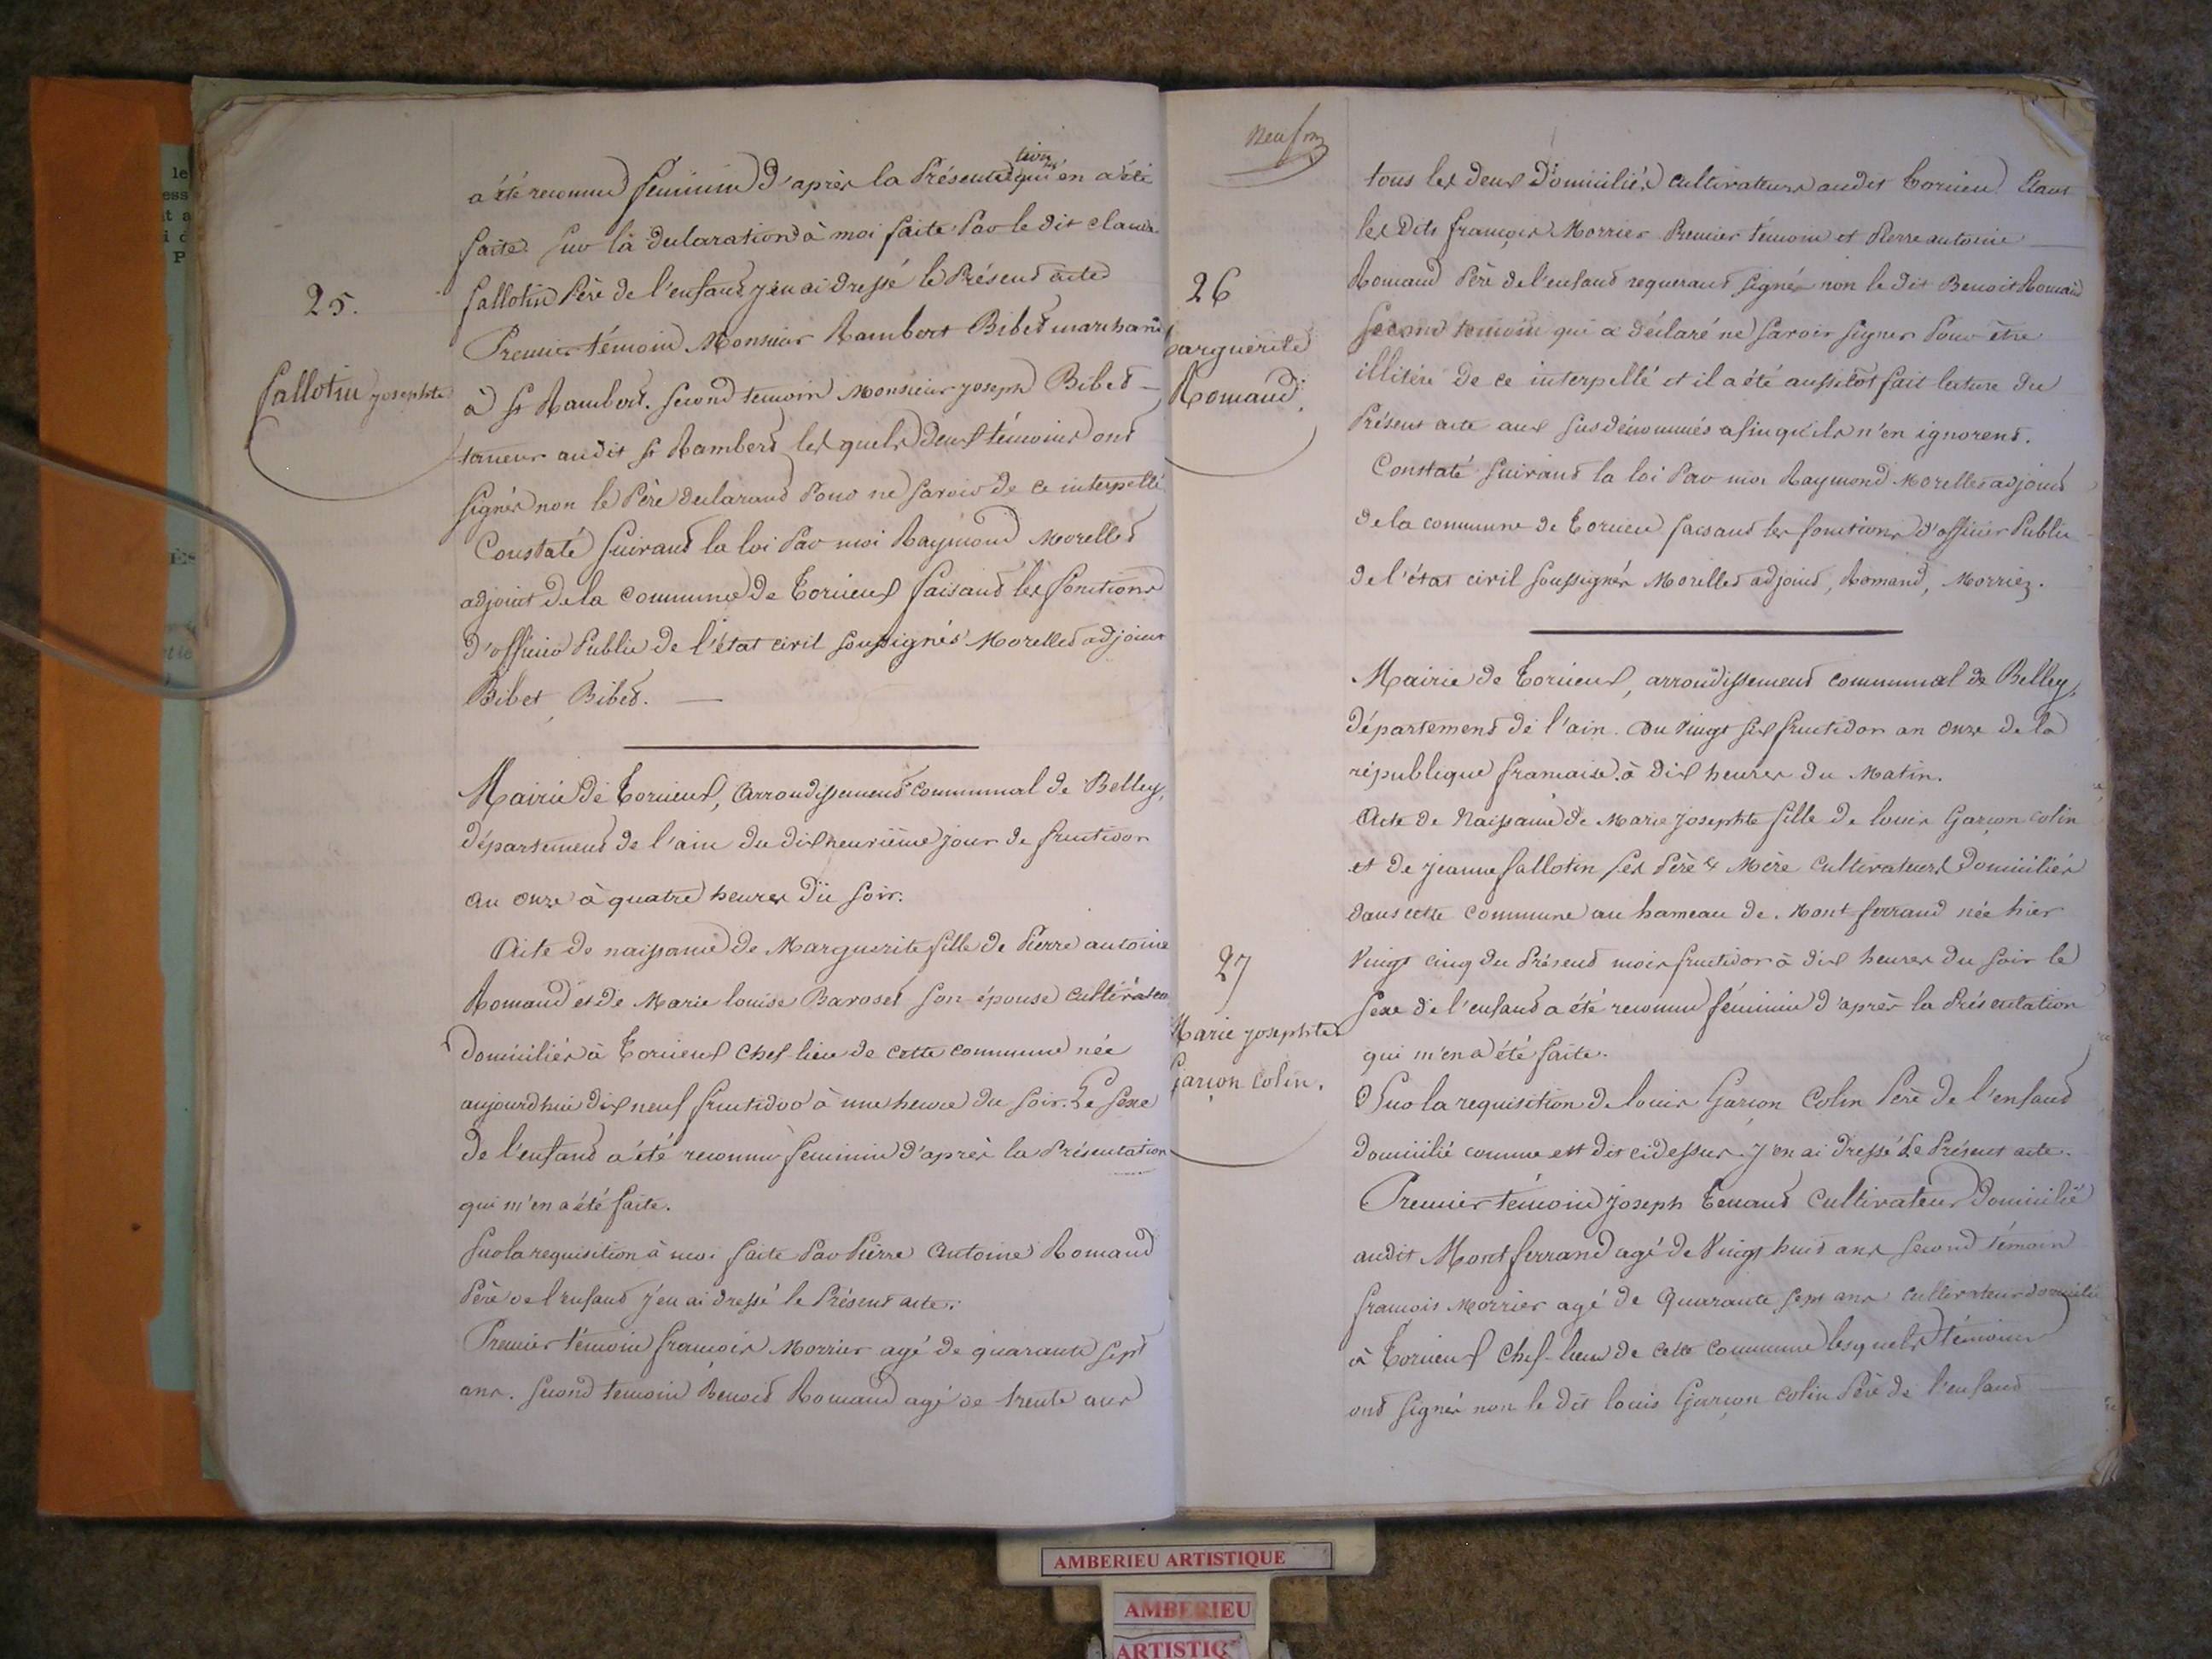 25.
fallotin josephte
a été reconnu feminin d'après la Présentation qui en a été
faite. sur la déclaration à moi faite Par le dit claude
fallotin Père de l'enfant j'en ai dressé le Présent acte
Premier témoin Monsieur Rambert Bibet marchand
à st Rambert. second temoin Monsieur joseph Bibet
taneur audit st Rambert lesquels deux témoins ont
signés non le Père declarant Pour ne savoir de ce interpellé
Constaté suivant la loi Par moi Raymond Morellet
adjoint de la commune de Torcieux faisant les fonctions
d'officier Public de l'état civil soussignés Morellet adjoint
Bibet Bibet.
Mairie de Torcieux, arrondissement communal de Belley,
département de l'ain du dix neuvième jour de fructidor
an onze à quatre heures du soir.
Acte de naissance de Marguerite fille de Pierre antoine
Romand et de Marie louise Baroset son épouse cultivateurs
domiciliés à Torcieux chef-lieu de cette commune née
aujourdhui dix neuf fructidor à une heure du soir. Le sexe
de l'enfant a été reconnu feminin d'après la Présentation
qui m'en a été faite.
sur la requisition à moi faite Par Pierre Antoine Romand
Père de l'enfant j'en ai dressé le Présent acte.
Premier témoin françois Morrier agé de quarante sept
ans. second temoin Benoit Romand agé de trente ans
neuf
26
Marguerite
Romand.
27
Marie josephte
Garçon Colin.
tous les deux domiciliés cultivateurs audit Torcieu. Etant
les dits françois Morrier Premier témoin et Pierre antoine
Romand Père de l'enfant requerant signés non le dit Benoit Romand
second temoin qui a déclaré ne savoir signer Pour être
illitéré de ce interpellé et il a été aussitôt fait lecture du
Présent acte aux susdénommés afin qu'ils n'en ignorent.
Constaté suivant la loi Par moi Raymond Morellet adjoint
de la commune de Torcieu faisant les fonctions d'officier Public
de l'état civil soussignés Morellet adjoint, Romand, Morriez.
Mairie de Torcieux, arrondissement communal de Belley,
département de l'ain. Du Vingt six fructidor an onze de la
république francaise. à dix heures du Matin.
Acte de Naissance de Marie josephte fille de louis Garçon colin
et de jeanne fallotin ses Père & Mère cultivateurs domiciliés
dans cette commune au hameau de Mont ferrand née hier
Vingt cinq du Présent mois fructidor à dix heures du soir le
sexe de l'enfant a été reconnu féminin d'après la Présentation
qui m'en a été faite.
Sur la requisition de louis Garçon Colin Père de l'enfant
domicilié comme est dit cidessus. j'en ai dressé Le Présent acte.
Premier témoin joseph Tenand Cultivateur domicilié
audit Mont ferrand agé de Vingt huit ans second témoin
françois Morrier agé de Quarante sept ans cultivateur domicilié
à Torcieux Chef-lieu de cette commune lesquels témoins
ont signés non le dit louis Garçon colin Père de l'enfant
AMBERIEU ARTISTIQUE
AMBERIEU
ARTISTIQ